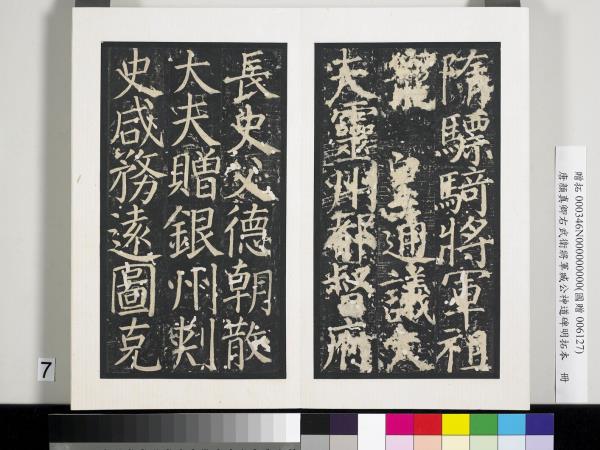 隋驃騎將軍祖
寵　皇通議大
夫靈州都督府
長史父德朝散
大夫贈銀州刺
史咸務遠圖克
贈拓 000346N000000000(國贈 006127)
唐顏真卿右武衛將軍臧公神道碑明拓本 冊
7